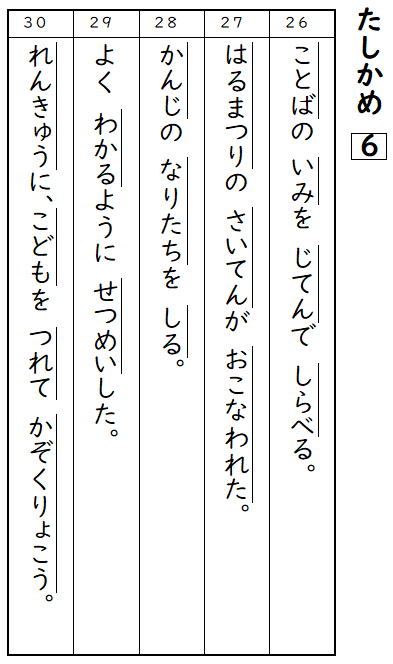 たしかめ 6
26
ことばの いみを じてんで しらべる。
27
はるまつりの さいてんが おこなわれた。
28
かんじの なりたちを しる。
29
よく わかるように せつめいした。
30
れんきゅうに、こどもを つれて かぞくりょこう。